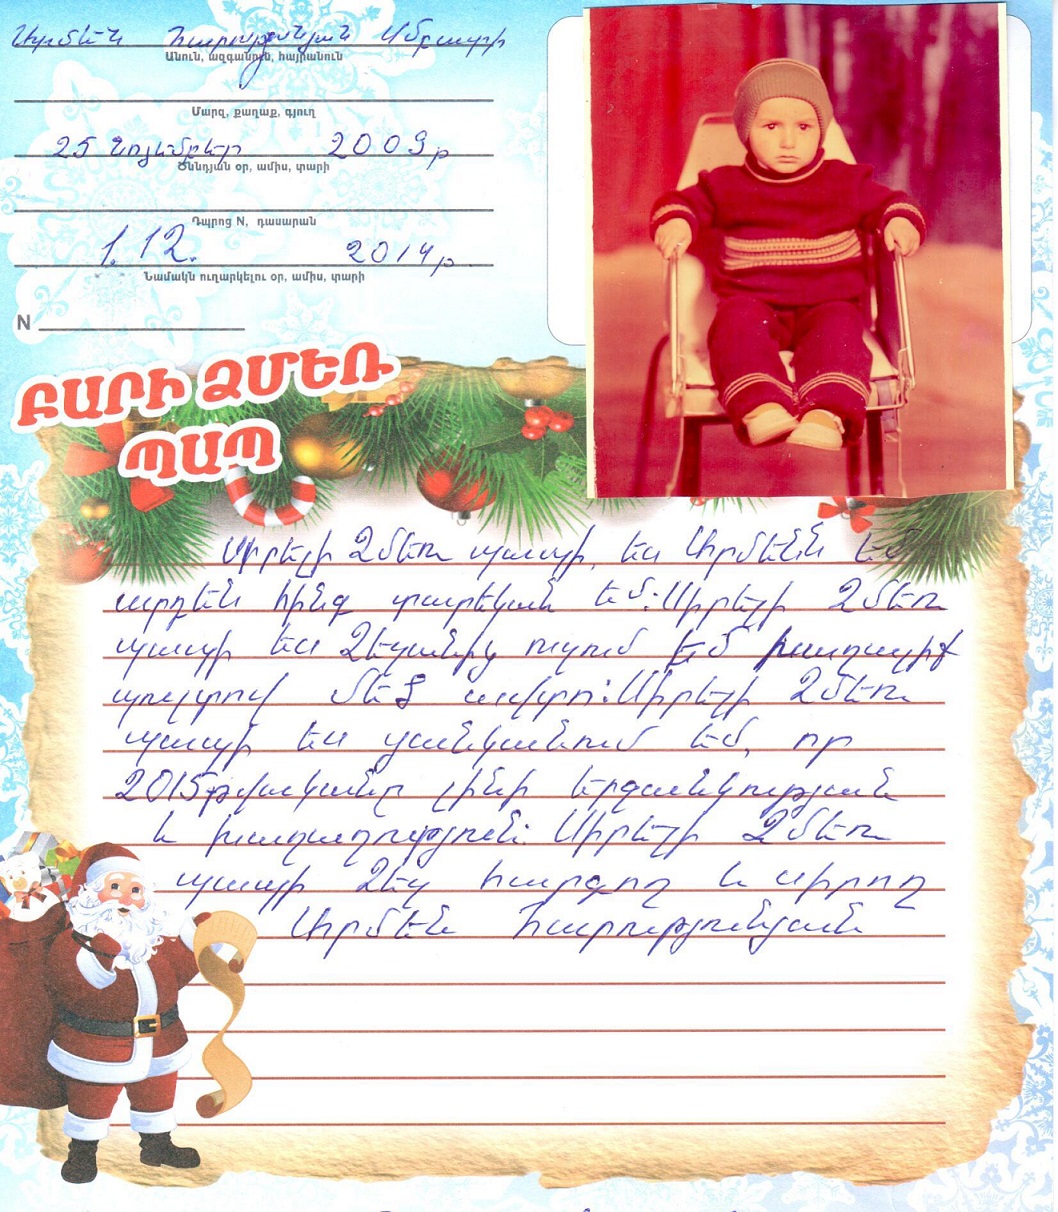 Արմեն Հարությունյան Սմբատի
Անուն, ազգանուն, հայրանուն
Մարզ, քաղաք, գյուղ
25 նոյեմբեր 2009թ
Ծննդյան օր, ամիս, տարի
Դպրոց N, դասարան
1.12. 2014թ
Նամակն ուղարկելու օր, ամիս, տարի
N
ԲԱՐԻ ՁՄԵՌ
ՊԱՊ
Սիրելի Ձմեռ պապի, ես Արմենն եմ
արդեն հինգ տարեկան եմ: Սիրելի Ձմեռ
պապի ես Ձեզանից ուզում եմ
պուլտով մեծ ավտո: Սիրելի Ձմեռ
պապի ես ցանկանում եմ, որ
2015թվականը լինի երջանկության
և խաղաղություն: Սիրելի Ձմեռ
պապի Ձեզ հարգող և սիրող
Արմեն Հարությունյան